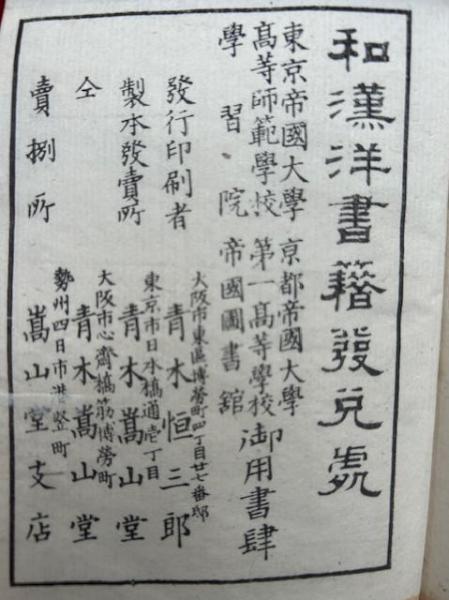 和漢洋書籍發兌處
東京帝國大學 京都帝國大學
高等師範學校 第一高等學校 御用書肆
學習院 帝國圖書館
大阪市東區博勞町四丁目廿七番邸
發行印刷者 青木恒三郎
東京市日本橋通壱丁目
製本發賣所 青木嵩山堂
大阪市心齋橋筋博勞町
仝 青木嵩山堂
勢州四日市港竪町
賣捌所 嵩山堂支店